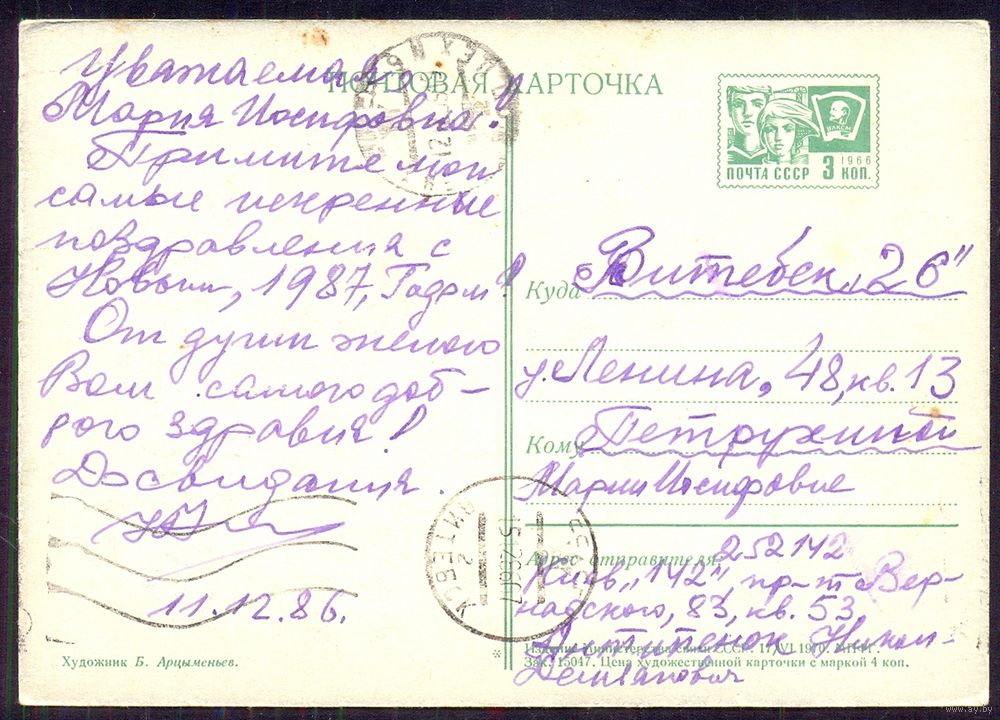 ПОЧТОВАЯ КАРТОЧКА
Уважаемая
Мария Иосифовна!
Примите мои
самые искренные
поздравления с
Новым, 1987, Годом!
От души желаю
Вам самого доб-
рого здравия!
До свидания.
11.12.86.
Художник Б. Арцыменьев.
ВЛКСМ
1966
ПОЧТА СССР 3 КОП.
Куда Витебск, 26"
у. Ленина, 48, кв. 13
Кому Петрухиной
Марии Иосифовне
Адрес отправителя: 252142
Киев, "142", пр-т Вер-
надского, 83, кв. 53,
Демьянович
Издание Министерства связи СССР. 17/VI 1970.
Зак. 15047. Цена художественной карточки с маркой 4 коп.
ВИТЕБСК
www.ay.by